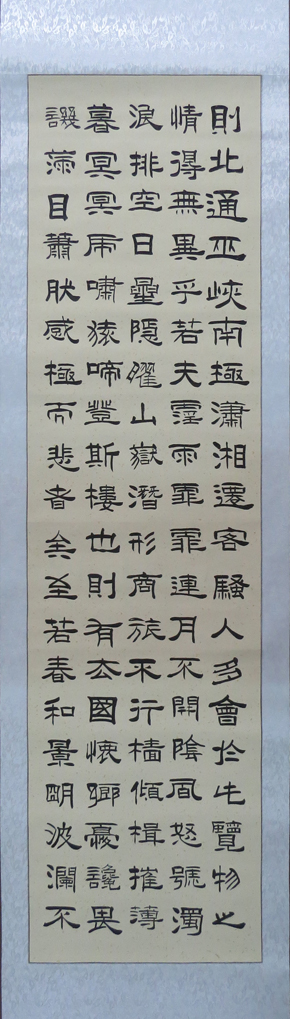 則北通巫峽南極瀟湘遷客騷人多會於此覽物之
情得無異乎若夫霪雨霏霏連月不開陰風怒號濁
浪排空日曐隱曜山嶽潛形商旅不行檣傾楫摧薄
暮冥冥虎嘯猿啼登斯樓也則有去國懷鄉憂讒畏
譏滿目蕭然感極而悲者矣至若春和景明波瀾不